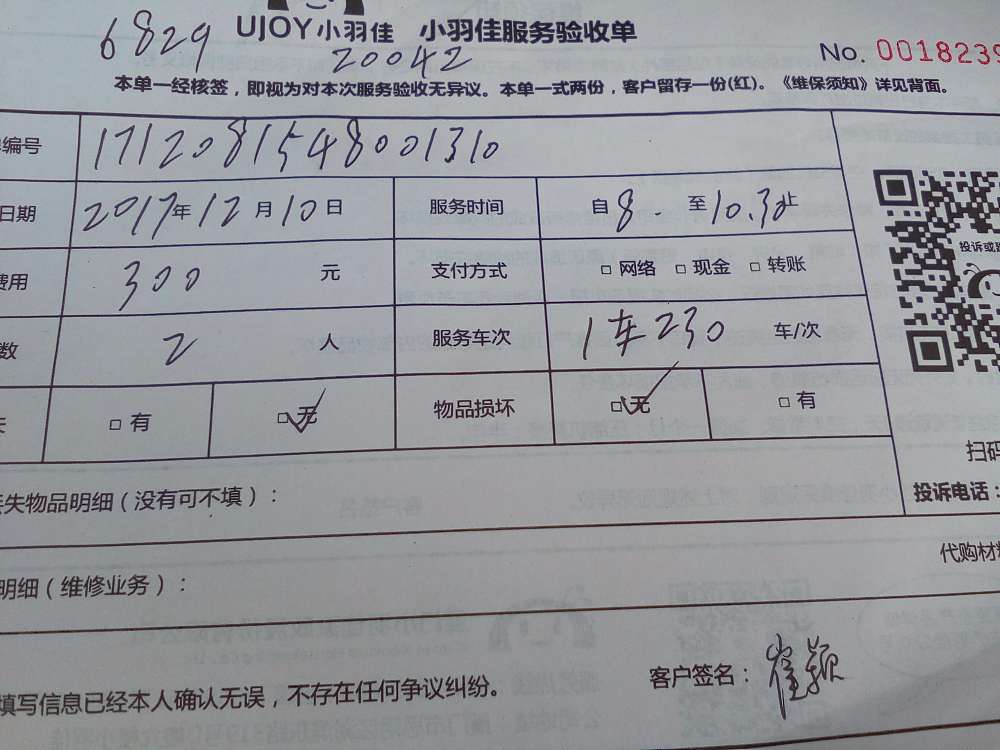 6829
UJOY小羽佳 小羽佳服务验收单
20042
No. 0018239
本单一经核签，即视为对本次服务验收无异议。本单一式两份，客户留存一份(红)。《维保须知》详见背面。
编号 1712081548001310
日期 2017年12月10日 服务时间 自8至10.30止
费用 300 元 支付方式 □网络 □现金 □转账
数 2 人 服务车次 1车230 车/次
□有 □无 物品损坏 □无 □有
投诉或
扫码
失物品明细（没有可不填）：
投诉电话：
代购材
明细（维修业务）：
填写信息已经本人确认无误，不存在任何争议纠纷。
客户签名：崔颖